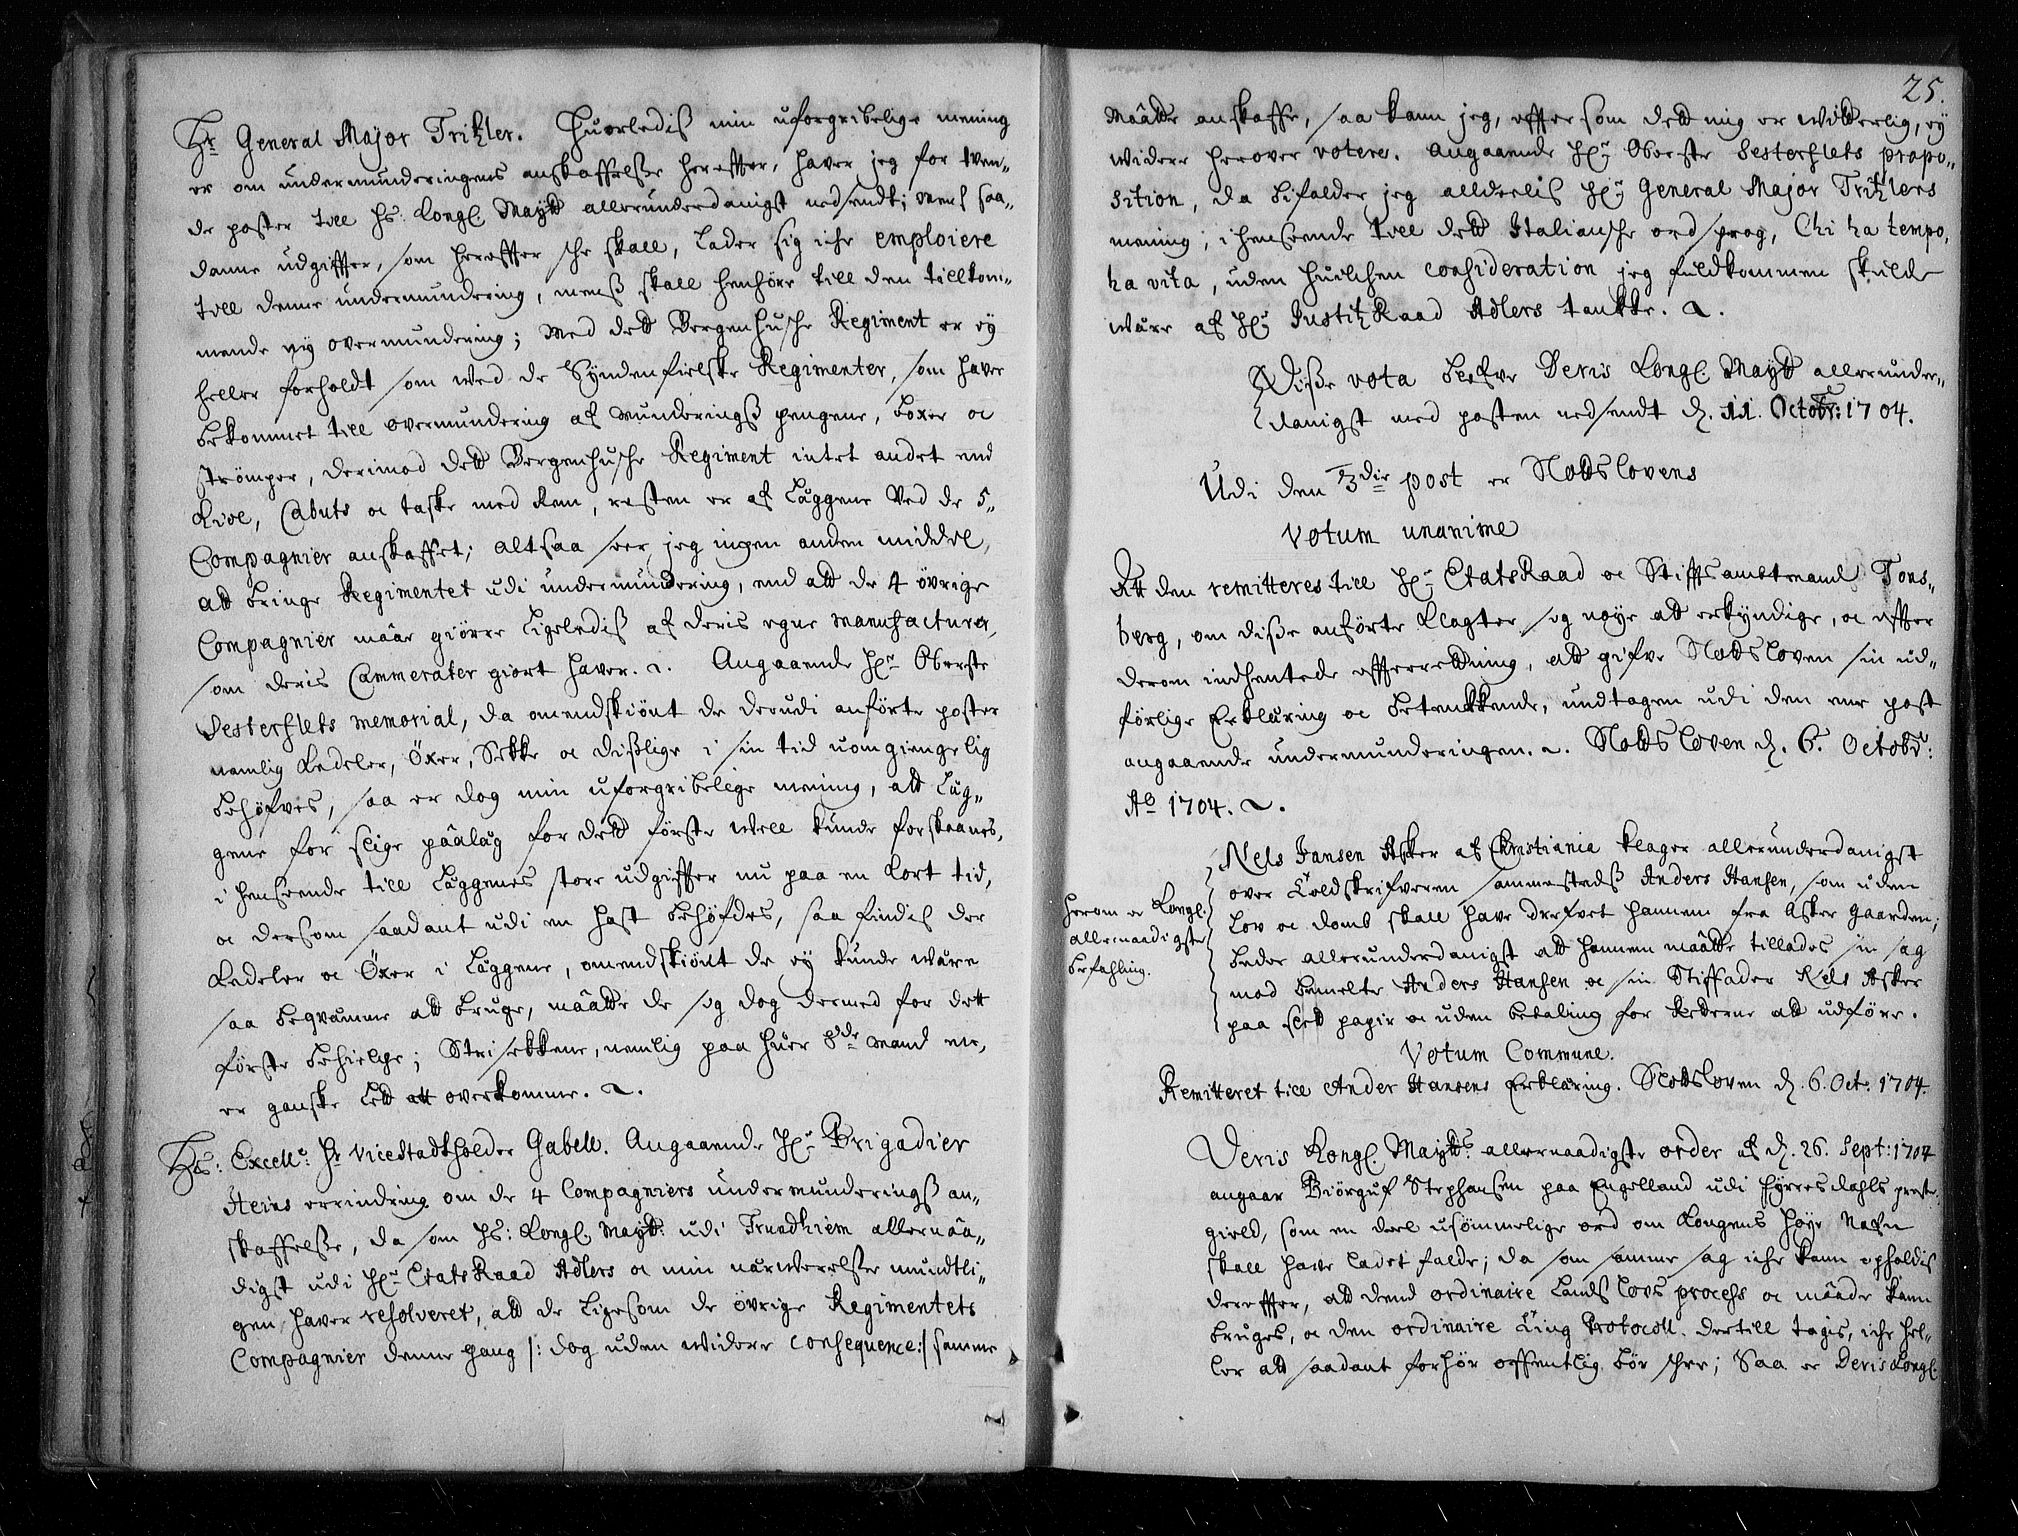 Hr General Major Tritzler. Huorledis min uforgribelige mening
er om undermunderingens anskaffelsse herefter, haver jeg for tven„
de poster till Hs: Kongl. Maytt allerunderdanigst nedsendt; mens saa„
danne udgiffter, som herefter ske skall, lader sig iche emploiere
till denne undermundering, mens skall henhøre till den tillkom„
mende ny overmundering; med dett Bergenhusche Regiment er ey
heller forholdt som med de Syndenfielske Regimenter, som haver
bekommet till overmundering af munderings pengene, boxer oc
strømper, derimod dett Bergenhusche Regiment intet andet end
Kiol, Cabuts oc taske med Rem, resten er af Læggene ved de 5„
Compagnier anskaffet; altsaa seer jeg ingen anden middel,
att bringe Regimentet udi undermundering, end att de 4 øvrige
Compagnier maae giøre ligeledis af deris egne manufacturer,
som deris Cammerater giort haver. Angaaende Hr Oberste
Sesterflets memorial, da omendskiønt de derudi anførte poster
nemlig Kedeler, Øxer, Sekke oc dislige i sin tid uomgiengelig
behøfves, saa er dog min uforgribelige mening, att Læg„
gene for slige paalæg for dett første well kunde forskaanes,
i henseende till Læggenes store udgiffter nu paa en kort tid,
oc dersom saadant udi en hast behøfdes, saa findis der
Kedeler oc Øxer i Læggene, omendskiønt de ey kunde være
saa beqvemme att bruge, maatte de sig dog dermed for dett
første behielpe; Strisekkene, nemlig paa huer 8de mand een,
er ganske lett att overkomme.
Hs: Excell: Hr Vicestadtholder Gabell. Angaaende Hr Brigadier
Heins erindring om de 4 Compagniers undermunderings an„
skaffelsse, da som Hs: Kongl. Mayt: udi Trundhiem allernaa„
digst udi Hr Etats Raad Adlers oc min nærwerelsse mundtli„
gen haver resolveret, att de ligesom de øvrige Regimentets
Compagnier denne gang /: dog uden widere consequence:/ samme
25.
maatte anskaffe, saa kann jeg, effter som dett mig er witterlig, ey
widere herover votere. Angaaende Hr Oberste Sesterflets propo„
sition, da bifalder jeg alldelis Hr General Major Tritzlers
mening, i henseende till dett Italiansche ordsprog, Chi ha tempo,
ha vita, uden huilchen consideration jeg fuldkommen skulde
være af Hr Justitz Raad Adlers tankke.
Disse vota blefve Deris Kongl. Maytt allerunder„
danigst med posten nedsendt d. 11. Octobr: 1704.
Udi den 3die post er Slottslovens
Votum unanime
Att den remitteres till Hr Etats Raad oc Stifftsambtmand Tons„
berg, om disse anførte Klagter sig nøye att erkyndige, oc effter
derom indhentede effterretning, att gifve Slottsloven sin ud„
førlige Erklæring oc betenkkende, undtagen udi den ene post
angaaende undermunderingen. Slottsloven d. 6. Octobr:
Ao 1704.
Nels Jansen Asker af Christiania klager allerunderdanigst
over Toldskrifveren sammesteds Anders Hansen, som uden
Lov oc domb skall have drefvet hannem fra Asker Gaarden;
beder allerunderdanigst att hannem maatte tillades sin sag
mod bemelte Anders Hansen oc sin Stiffader Nels Asker
paa slett papir oc uden betaling for Retterne att udføre.
herom er Kongl.
allernaadigste
befahling.
Votum Commune.
Remitteret till Ander Hansens Erklæring. Slottsloven d. 6. Oct: 1704.
Deris Kongl. Maytts allernaadigste order af d. 26. Sept: 1704
angaar Biørguf Stephansen paa Engelland udi Hyrresdahls preste„
gield, som en deel usømmelige ord om Kongens høye Nafn
skall have ladet falde; da som samme sag iche kann opholdis
dereffter, att dend ordinaire Lands Lovs process oc maade kann
bruges, oc den ordinaire Ting Protocoll dertill tages, iche hel„
ler att saadant forhør offentlig bør skee; Saa er Deris Kongl.